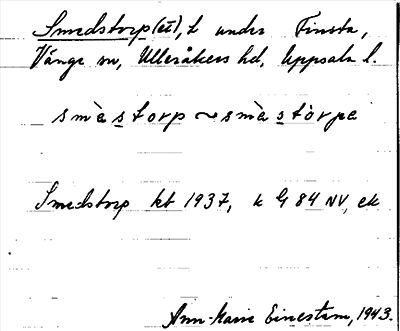 Smedstorp (et), t under Finsta,
Vänge sn, Ulleråkers hd, Uppsala l.
smàstorp ~ smàstòrpe
Smedstorp kt 1937, k G 84 NV, ek
Ann-Marie Einestam, 1943.